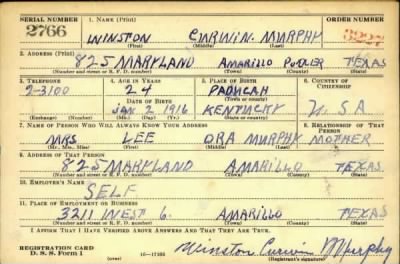 SERIAL NUMBER 1. NAME (Print) ORDER NUMBER
2766 WINSTON CURWIN MURPHY 3227
(First) (Middle) (Last)
2. ADDRESS (Print)
825 MARYLAND AMARILLO POTTER TEXAS
(Number and street or R. F. D. number) (Town) (County) (State)
3. TELEPHONE 4. AGE IN YEARS 5. PLACE OF BIRTH 6. COUNTRY OF CITIZENSHIP
2-3100 24 PADUCAH
DATE OF BIRTH (Town or county)
JAN 2 1916 KENTUCKY U.S.A
(Exchange) (Number) (Mo.) (Day) (Yr.) (State or country)
7. NAME OF PERSON WHO WILL ALWAYS KNOW YOUR ADDRESS 8. RELATIONSHIP OF THAT PERSON
MRS LEE ORA MURPHY MOTHER
(Mr., Mrs., Miss) (First) (Middle) (Last)
9. ADDRESS OF THAT PERSON
825 MARYLAND AMARILLO TEXAS
(Number and street or R. F. D. number) (Town) (County) (State)
10. EMPLOYER'S NAME
SELF
11. PLACE OF EMPLOYMENT OR BUSINESS
3211 WEST 6. AMARILLO TEXAS
(Number and street or R. F. D. number) (Town) (County) (State)
I AFFIRM THAT I HAVE VERIFIED ABOVE ANSWERS AND THAT THEY ARE TRUE.
REGISTRATION CARD
D. S. S. Form 1 16-17105 Winston Curwin Murphy
(Registrant's signature)